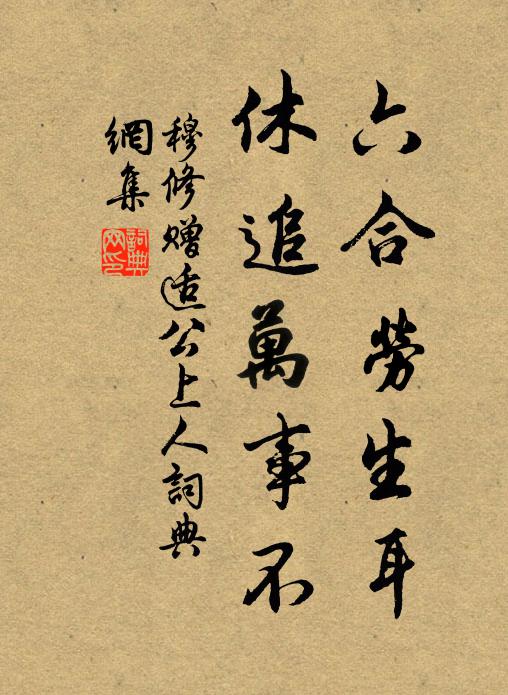 六合勞生耳
休追萬事不
穆修贈适公上人詞典
網集
詞典網印